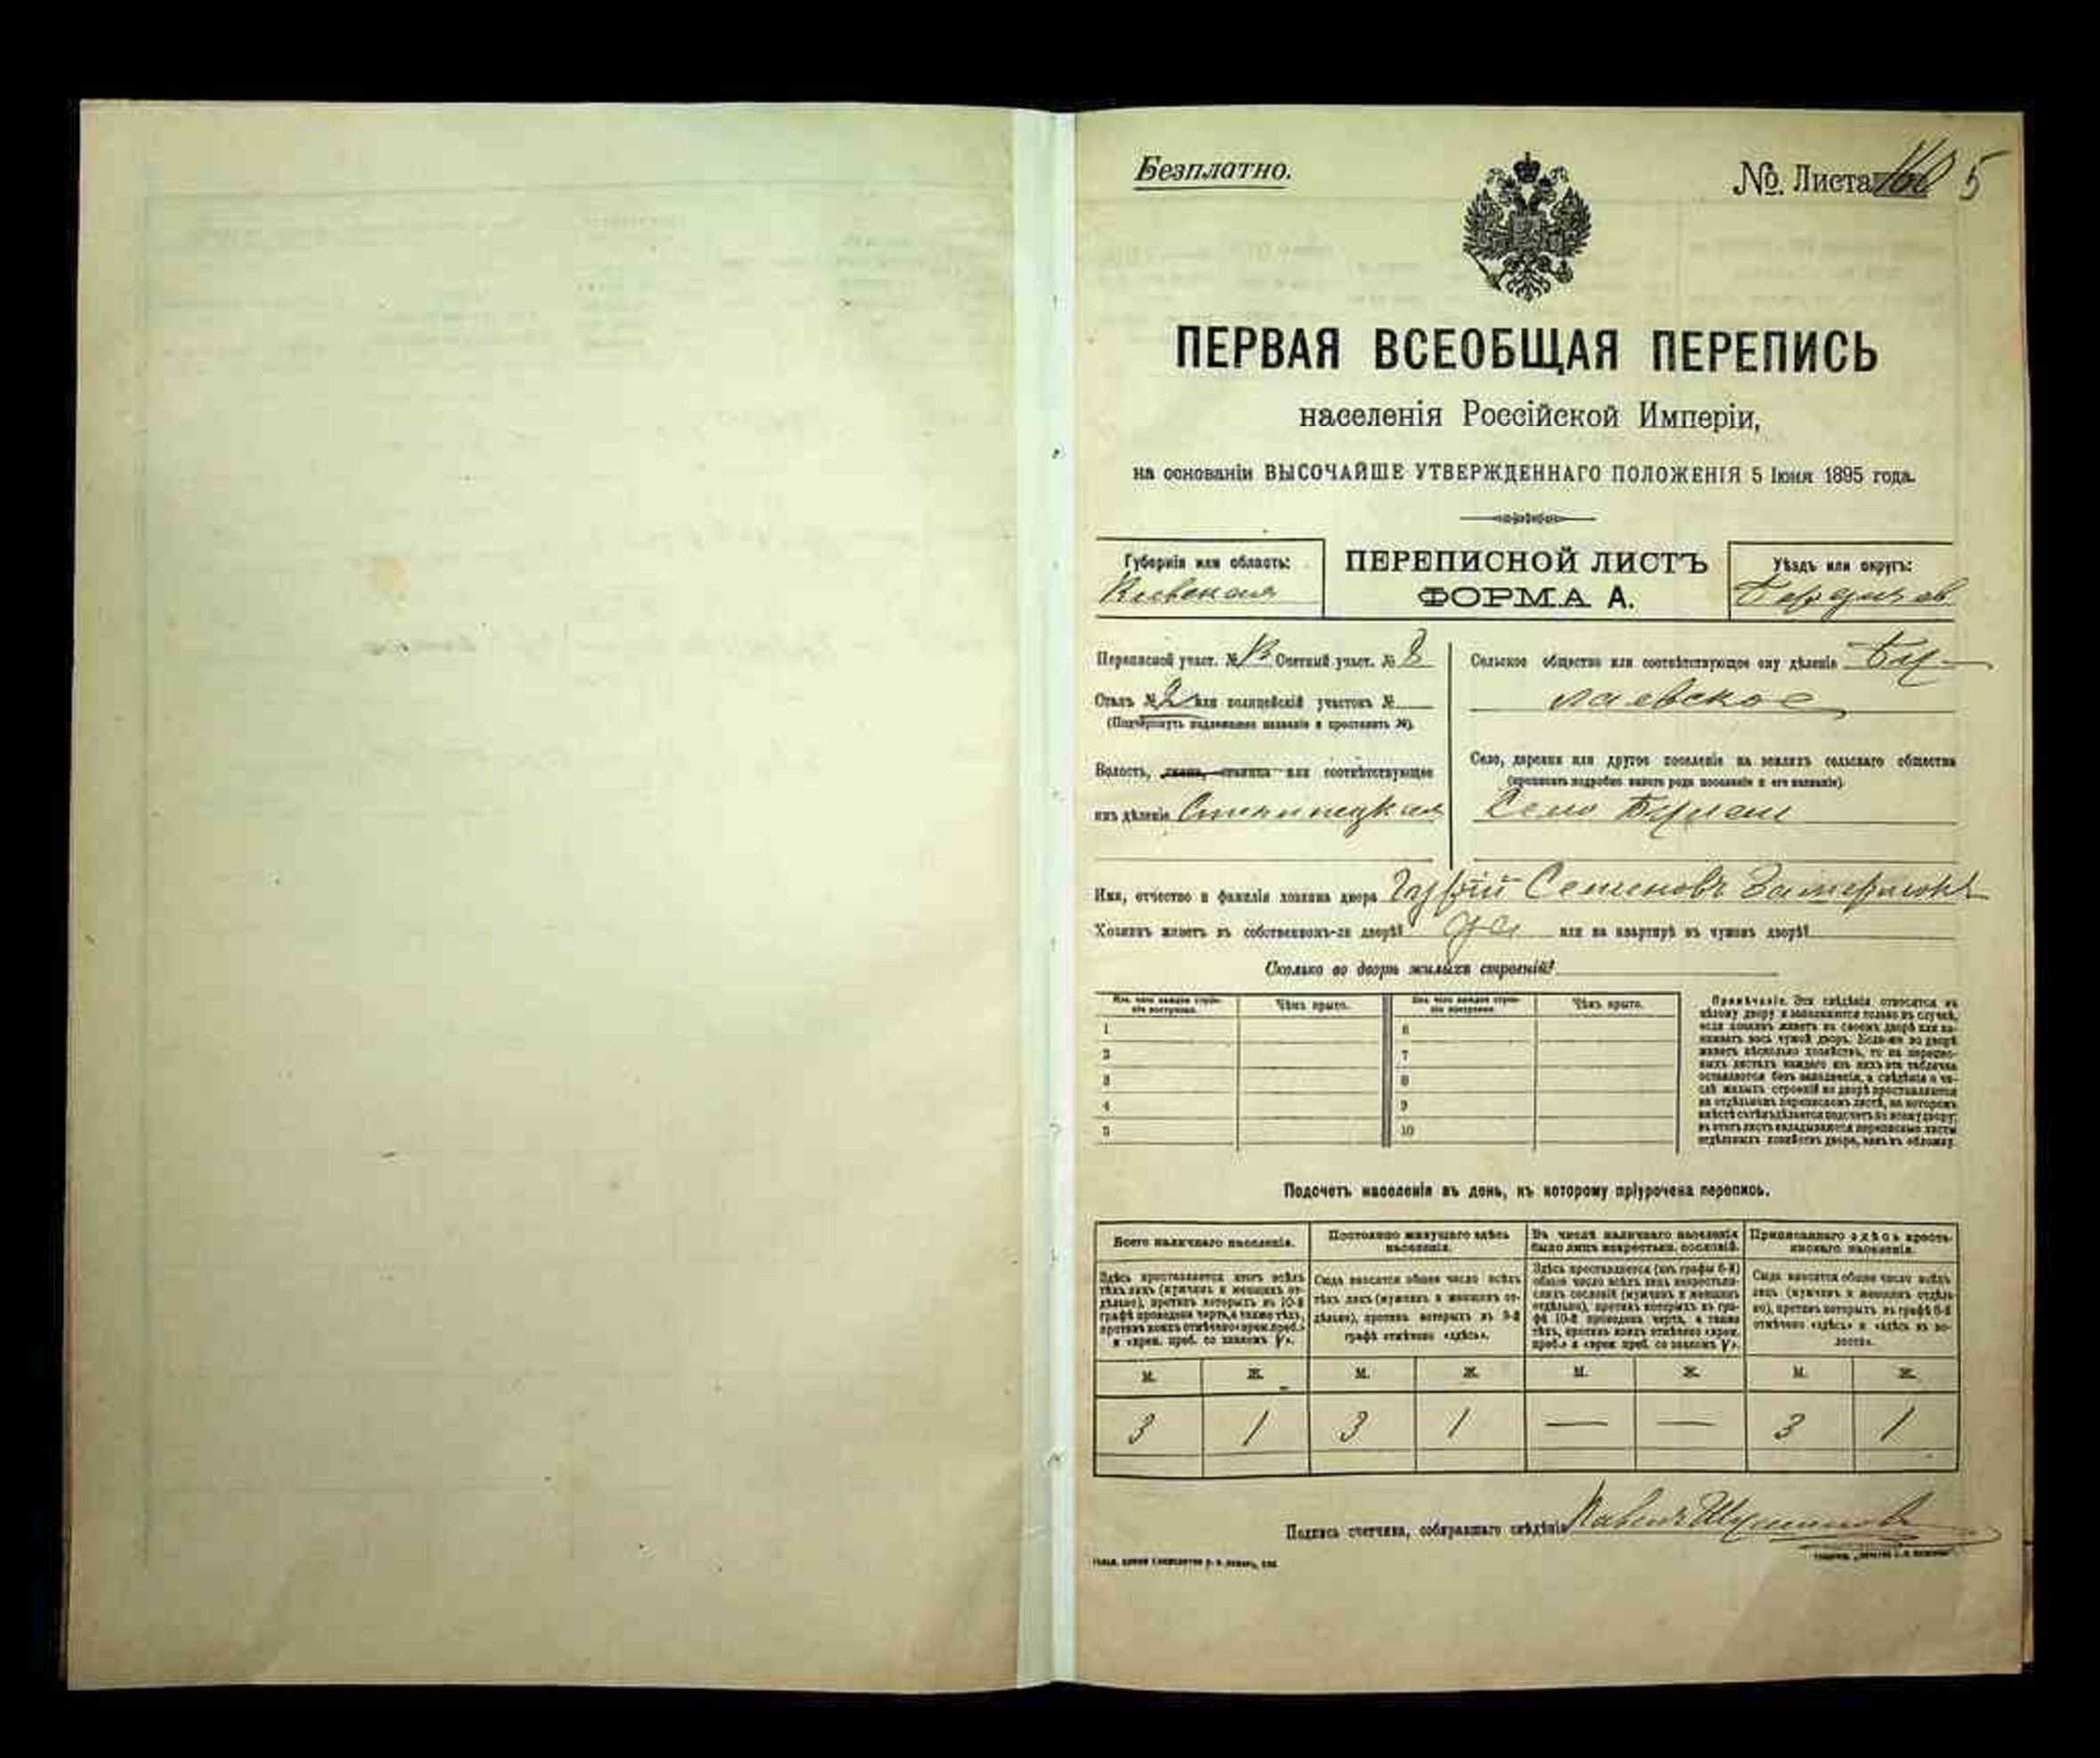 Безплатно.
№ Листа 160 5
ПЕРВАЯ ВСЕОБЩАЯ ПЕРЕПИСЬ
населенія Россійской Имперіи,
на основаніи ВЫСОЧАЙШЕ УТВЕРЖДЕННАГО ПОЛОЖЕНІЯ 5 Іюня 1895 года.
Губернія или область:
Кіевская
ПЕРЕПИСНОЙ ЛИСТЪ
ФОРМА А.
Уѣздъ или округъ:
Бердичев
Переписной участ. № Счетный участ. №
Станъ № 2 или полицейскій участокъ №
(Подчеркнуть надлежащее названіе и проставить №).
Волость, гмина, станица или соотвѣтствующее
имъ дѣленіе
Сельское общество или соотвѣтствующее ему дѣленіе Бур-
лаевское
Село, деревня или другое поселеніе на земляхъ сельскаго общества
(прописать подробно какого рода поселеніе и его названіе).
Село
Имя, отчество и фамилія хозяина двора Гурій Семеновъ
Хозяинъ живетъ въ собственномъ-ли дворѣ? да или на квартирѣ въ чужомъ дворѣ?
Сколько во дворѣ жилыхъ строеній?
Изъ чего каждое строе-
ніе построено.
Чѣмъ крыто.
Изъ чего каждое строе-
ніе построено.
Чѣмъ крыто.
1 6
2 7
3 8
4 9
5 10
Примѣчаніе. Эти свѣдѣнія относятся къ
цѣлому двору и заполняются только въ случаѣ,
если хозяинъ живетъ въ своемъ дворѣ или за-
нимаетъ весь чужой дворъ. Если-же во дворѣ
живетъ нѣсколько хозяйствъ, то на перепис-
ныхъ листахъ каждаго изъ нихъ эта табличка
оставляется безъ заполненія, а свѣдѣнія о чи-
слѣ жилыхъ строеній во дворѣ проставляются
на отдѣльномъ переписномъ листѣ, на которомъ
вмѣстѣ съ тѣмъ дѣлается подсчетъ по всему двору;
въ этотъ листъ вкладываются переписные листы
отдѣльныхъ хозяйствъ двора, какъ въ обложку.
Подсчетъ населенія въ день, къ которому пріурочена перепись.
Всего наличнаго населенія.
Постоянно живущаго здѣсь
населенія.
Въ числѣ наличнаго населенія
было лицъ некрестьян. сословій.
Приписаннаго здѣсь кресть-
янскаго населенія.
Здѣсь проставляется итогъ всѣхъ
тѣхъ лицъ (мужчинъ и женщинъ от-
дѣльно), противъ которыхъ въ 10-й
графѣ проведена черта, а также тѣхъ,
противъ коихъ отмѣчено «врем. преб.»
и «врем. преб. со знакомъ V».
Сюда вносится общее число всѣхъ
тѣхъ лицъ (мужчинъ и женщинъ от-
дѣльно), противъ которыхъ въ 9-й
графѣ отмѣчено «здѣсь».
Здѣсь проставляется (изъ графы 6-й)
общее число всѣхъ лицъ некрестьян-
скихъ сословій (мужчинъ и женщинъ
отдѣльно), противъ которыхъ въ гра-
фѣ 10-й проведена черта, а также
тѣхъ, противъ коихъ отмѣчено «врем.
преб.» и «врем. преб. со знакомъ V».
Сюда вносится общее число всѣхъ
лицъ (мужчинъ и женщинъ отдѣль-
но), противъ которыхъ въ графѣ 8-й
отмѣчено «здѣсь» и «здѣсь въ во-
лости».
М. Ж. М. Ж. М. Ж. М. Ж.
3 1 3 1 — — 3 1
Подпись счетчика, собиравшаго свѣдѣнія Павелъ